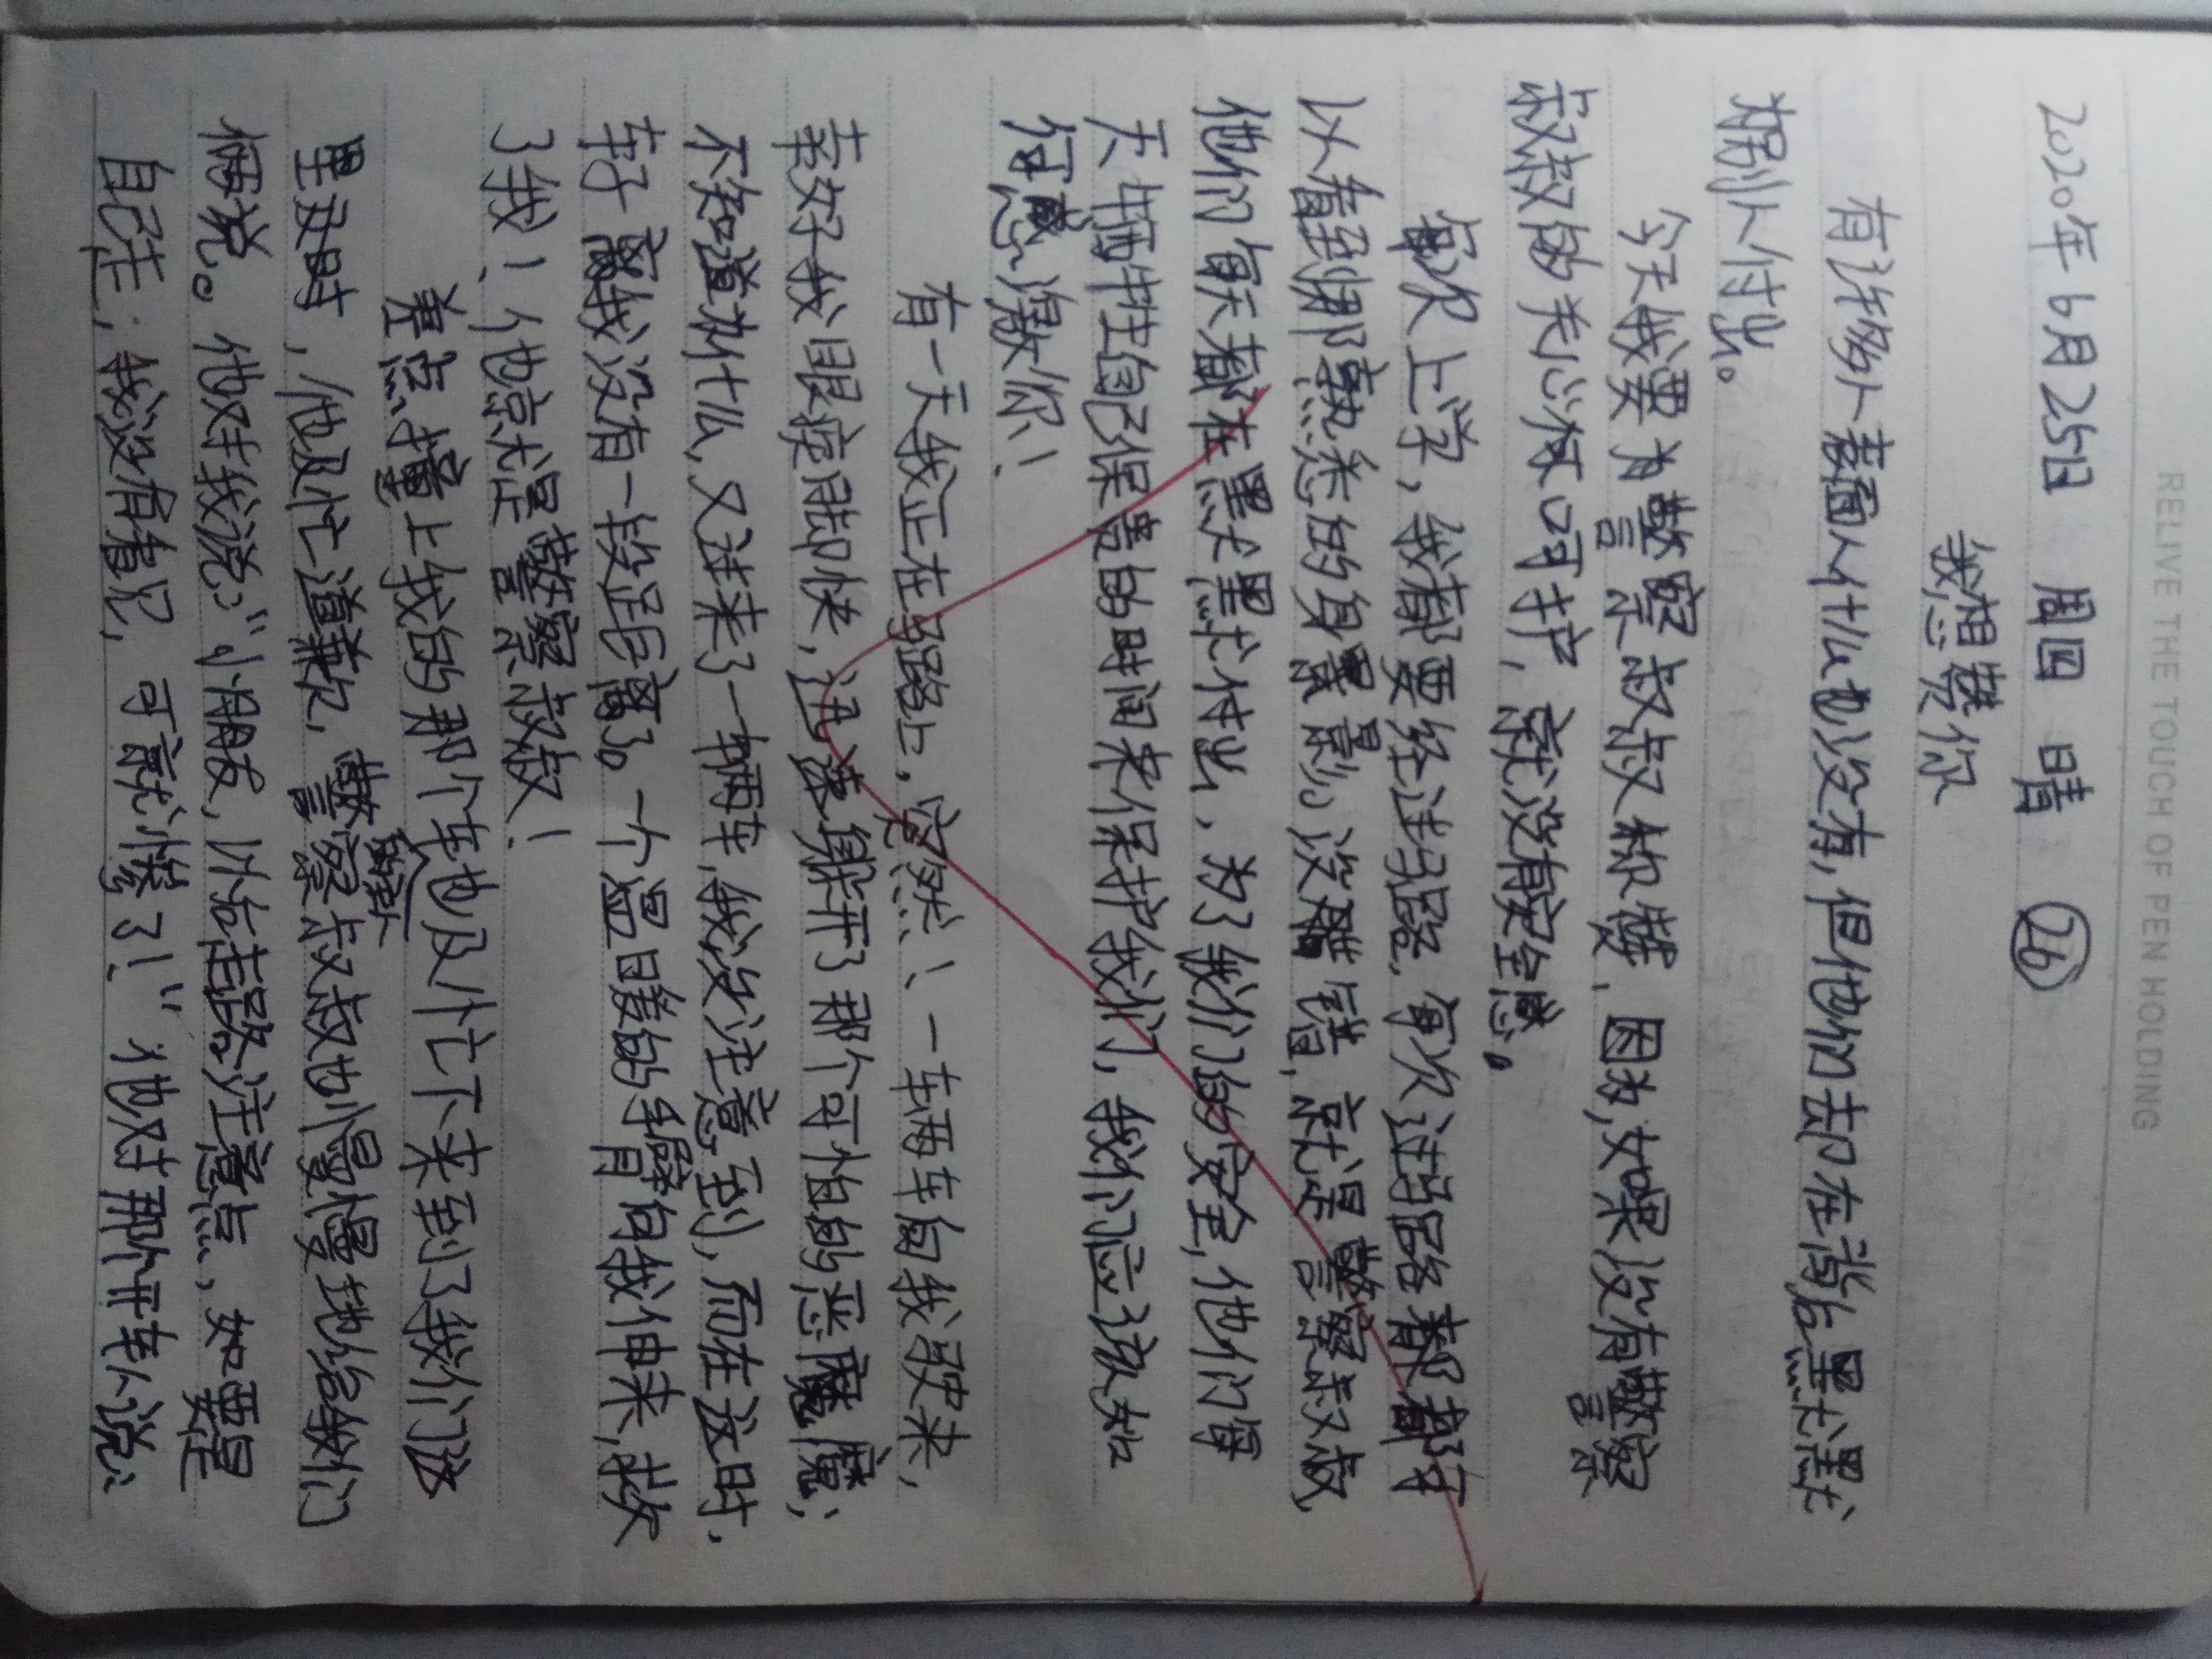 RELIVE THE TOUCH OF PEN HOLDING
2020年6月25日 周四 晴 26
我想赞你
有许多人表面什么也没有,但他们却在背后黑犬黑犬
为别人付出。
今天我要为警察叔叔点赞,因为,如果没有警察
叔叔的关心和呵护,就没有安全感。
每次上学,我都要经过马路,每次过马路都都可
以看到那熟悉的身景影。没错,就是警察叔叔,
他们每天都在黑犬黑犬付出,为了我们的安全,他们每
天牺牲自己保贵的时间来保护我们,我们应该知
何感激你!
有一天我正在马路上,突然!一车两车向我驶来,
幸好我眼疾脚快,迅速躲开了那个可怕的恶魔,
不知道为什么,又进来了一辆车,我没注意到,而在这时,
车子离我没有一段距离了。一个温暖的手臂向我伸来,救
了我!他就是警察叔叔!
差点撞上我的那个车也及忙下来到了我们这
里及时,他及忙道歉,警察叔叔也小曼慢地给我们
俩说。他对我说:“小朋友,以后走路注意点,如要是
自己走,我没有看见,可就惨了!”他对那个开车人说: